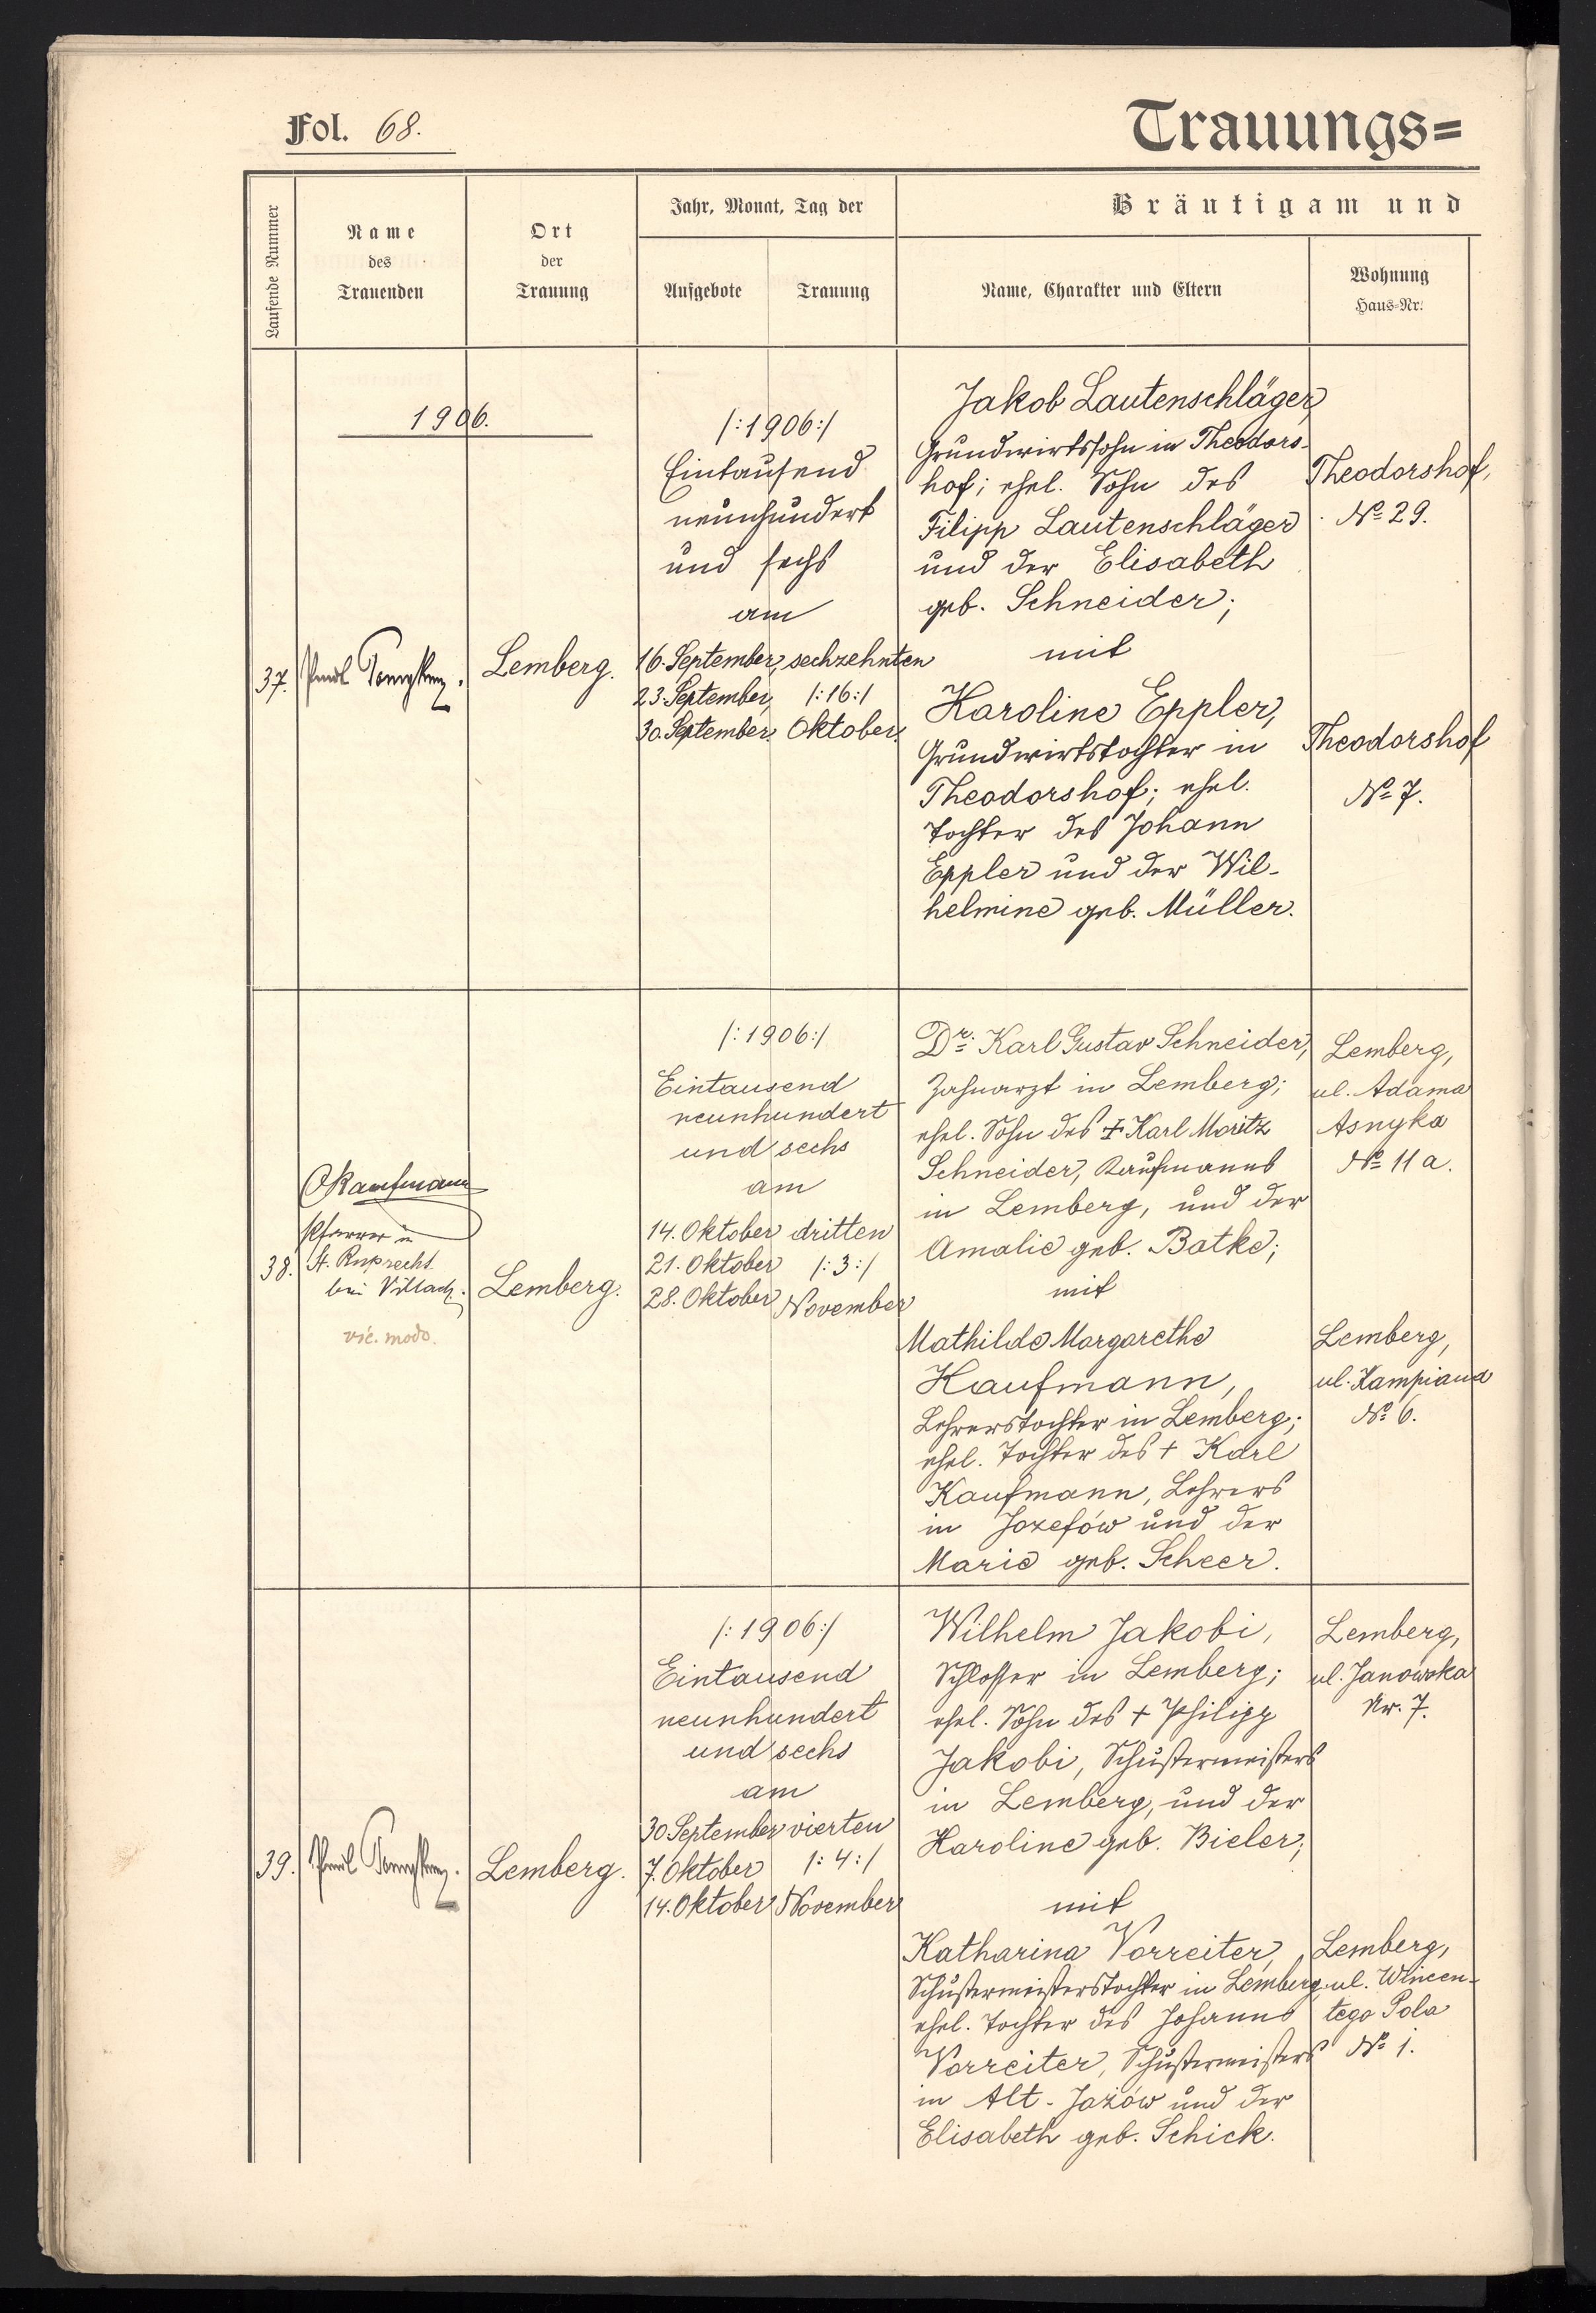 Fol. 68.
Trauungs=
Laufende Nummer
Name
des
Trauenden
Ort
der
Trauung
Jahr, Monat, Tag der
Aufgebote
Trauung
Bräutigam und
Name, Charakter und Eltern
Wohnung
Haus=Nr.
1906.
37.
Lemberg.
/:1906:/
Eintausend
neunhundert
und sechs
am
16. September, sechzehnten
23. September, /:16:/
30. September. Oktober.
Jakob Lautenschläger,
Grundwirtssohn in Theodors-
hof; ehel. Sohn des
Filipp Lautenschläger
und der Elisabeth
geb. Schneider;
mit
Karoline Eppler,
Grundwirtstochter in
Theodorshof; ehel.
Tochter des Johann
Eppler und der Wil-
helmine geb. Müller.
Theodorshof,
No 29.
Theodorshof
No 7.
38.
OKaufmann
Pfarrer in
St. Ruprecht
bei Villach.
vic. modo.
Lemberg.
/:1906:/
Eintausend
neunhundert
und sechs
am
14. Oktober dritten
21. Oktober /:3:/
28. Oktober November
Dr. Karl Gustav Schneider,
Zahnarzt in Lemberg;
ehel. Sohn des + Karl Moritz
Schneider, Kaufmanns
in Lemberg, und der
Amalie geb. Batke;
mit
Mathilde Margarethe
Kaufmann,
Lehrerstochter in Lemberg;
ehel. Tochter des + Karl
Kaufmann, Lehrers
in Jozefów und der
Marie geb. Scheer.
Lemberg,
ul. Adama
Asnyka
No 11 a.
Lemberg,
ul. Kampiana
No 6.
39.
Lemberg.
/:1906:/
Eintausend
neunhundert
und sechs
am
30 September vierten
7. Oktober /:4:/
14. Oktober November
Wilhelm Jakobi,
Schlosser in Lemberg;
ehel. Sohn des + Philipp
Jakobi, Schustermeisters
in Lemberg, und der
Karoline geb. Bieler;
mit
Katharina Vorreiter,
Schustermeisterstochter in Lemberg,
ehel. Tochter des Johanns
Vorreiter, Schustermeisters
in Alt-Jażów und der
Elisabeth geb. Schick.
Lemberg,
ul. Janowska
Nr. 7.
Lemberg,
ul. Wincen-
tego Pola
No 1.